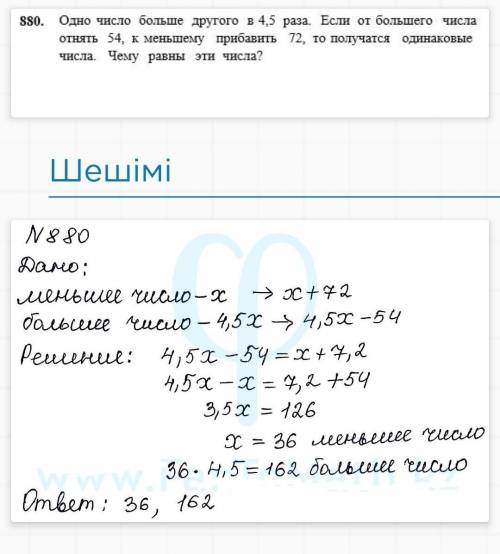 880. Одно число больше другого в 4,5 раза. Если от большего числа
отнять 54, к меньшему прибавить 72, то получатся одинаковые
числа. Чему равны эти числа?
Шешімі
N880
Дано:
меньшее число – x → x+72
большее число – 4,5x → 4,5x-54
Решение: 4,5x-54=x+7,2
4,5x-x=7,2+54
3,5x=126
x=36 меньшее число
36·4,5=162 большее число
Ответ: 36, 162